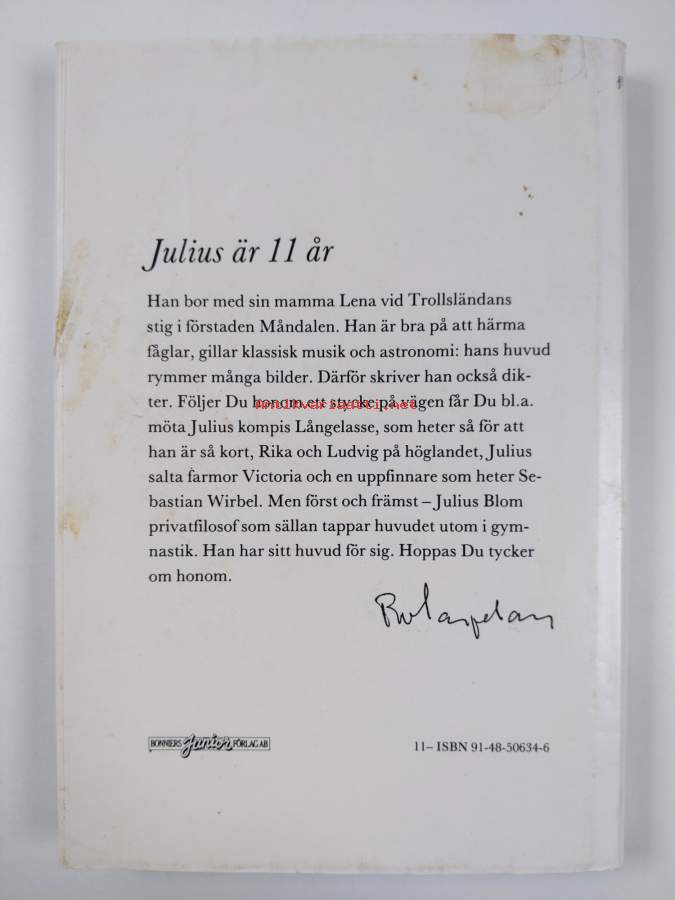 Julius är 11 år
Han bor med sin mamma Lena vid Trollsländans
stig i förstaden Måndalen. Han är bra på att härma
fåglar, gillar klassisk musik och astronomi: hans huvud
rymmer många bilder. Därför skriver han också dik-
ter. Följer Du honom ett stycke på vägen får Du bl.a.
antikvariaatti.net
möta Julius kompis Långelasse, som heter så för att
han är så kort, Rika och Ludvig på höglandet, Julius
salta farmor Victoria och en uppfinnare som heter Se-
bastian Wirbel. Men först och främst – Julius Blom
privatfilosof som sällan tappar huvudet utom i gym-
nastik. Han har sitt huvud för sig. Hoppas Du tycker
om honom.
BONNIERS Junior FÖRLAG AB
11– ISBN 91-48-50634-6